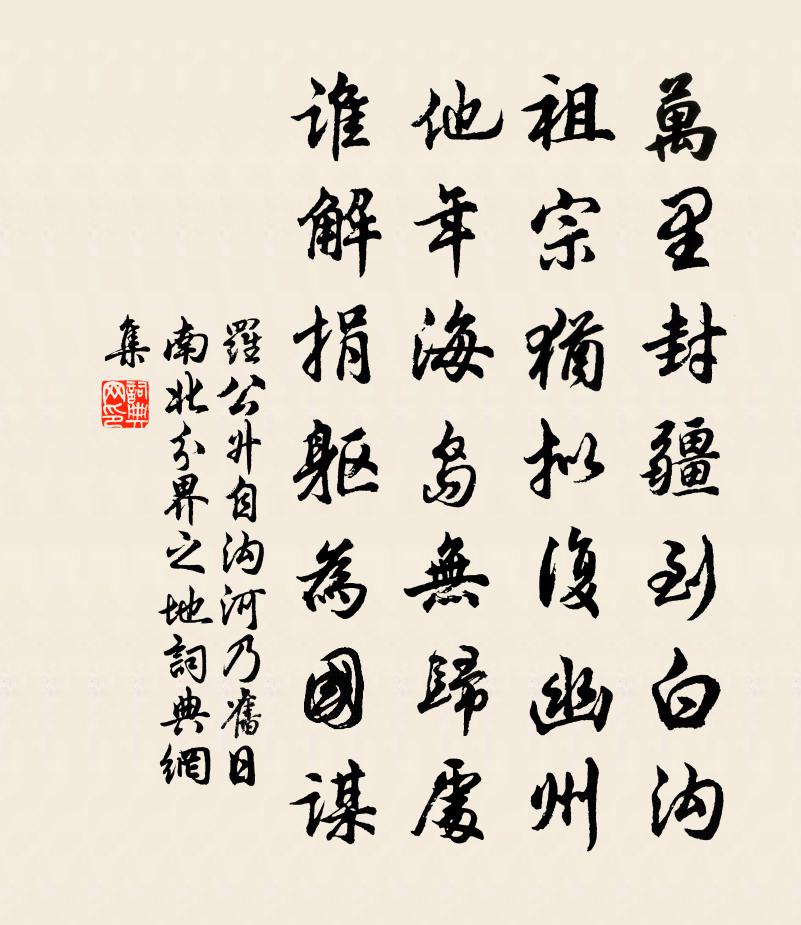 萬里封疆到白沟
祖宗猶拟復幽州
他年海岛無歸處
谁解捐躯為國谋
羅公升自沟河乃舊日
南北分界之地詞典網
集
詞典網印